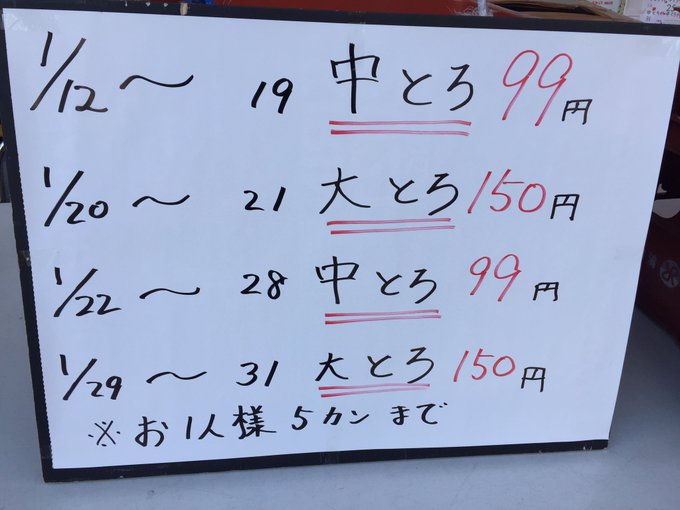 1/12～19 中とろ 99円
1/20～21 大とろ 150円
1/22～28 中とろ 99円
1/29～31 大とろ 150円
※お1人様5カンまで